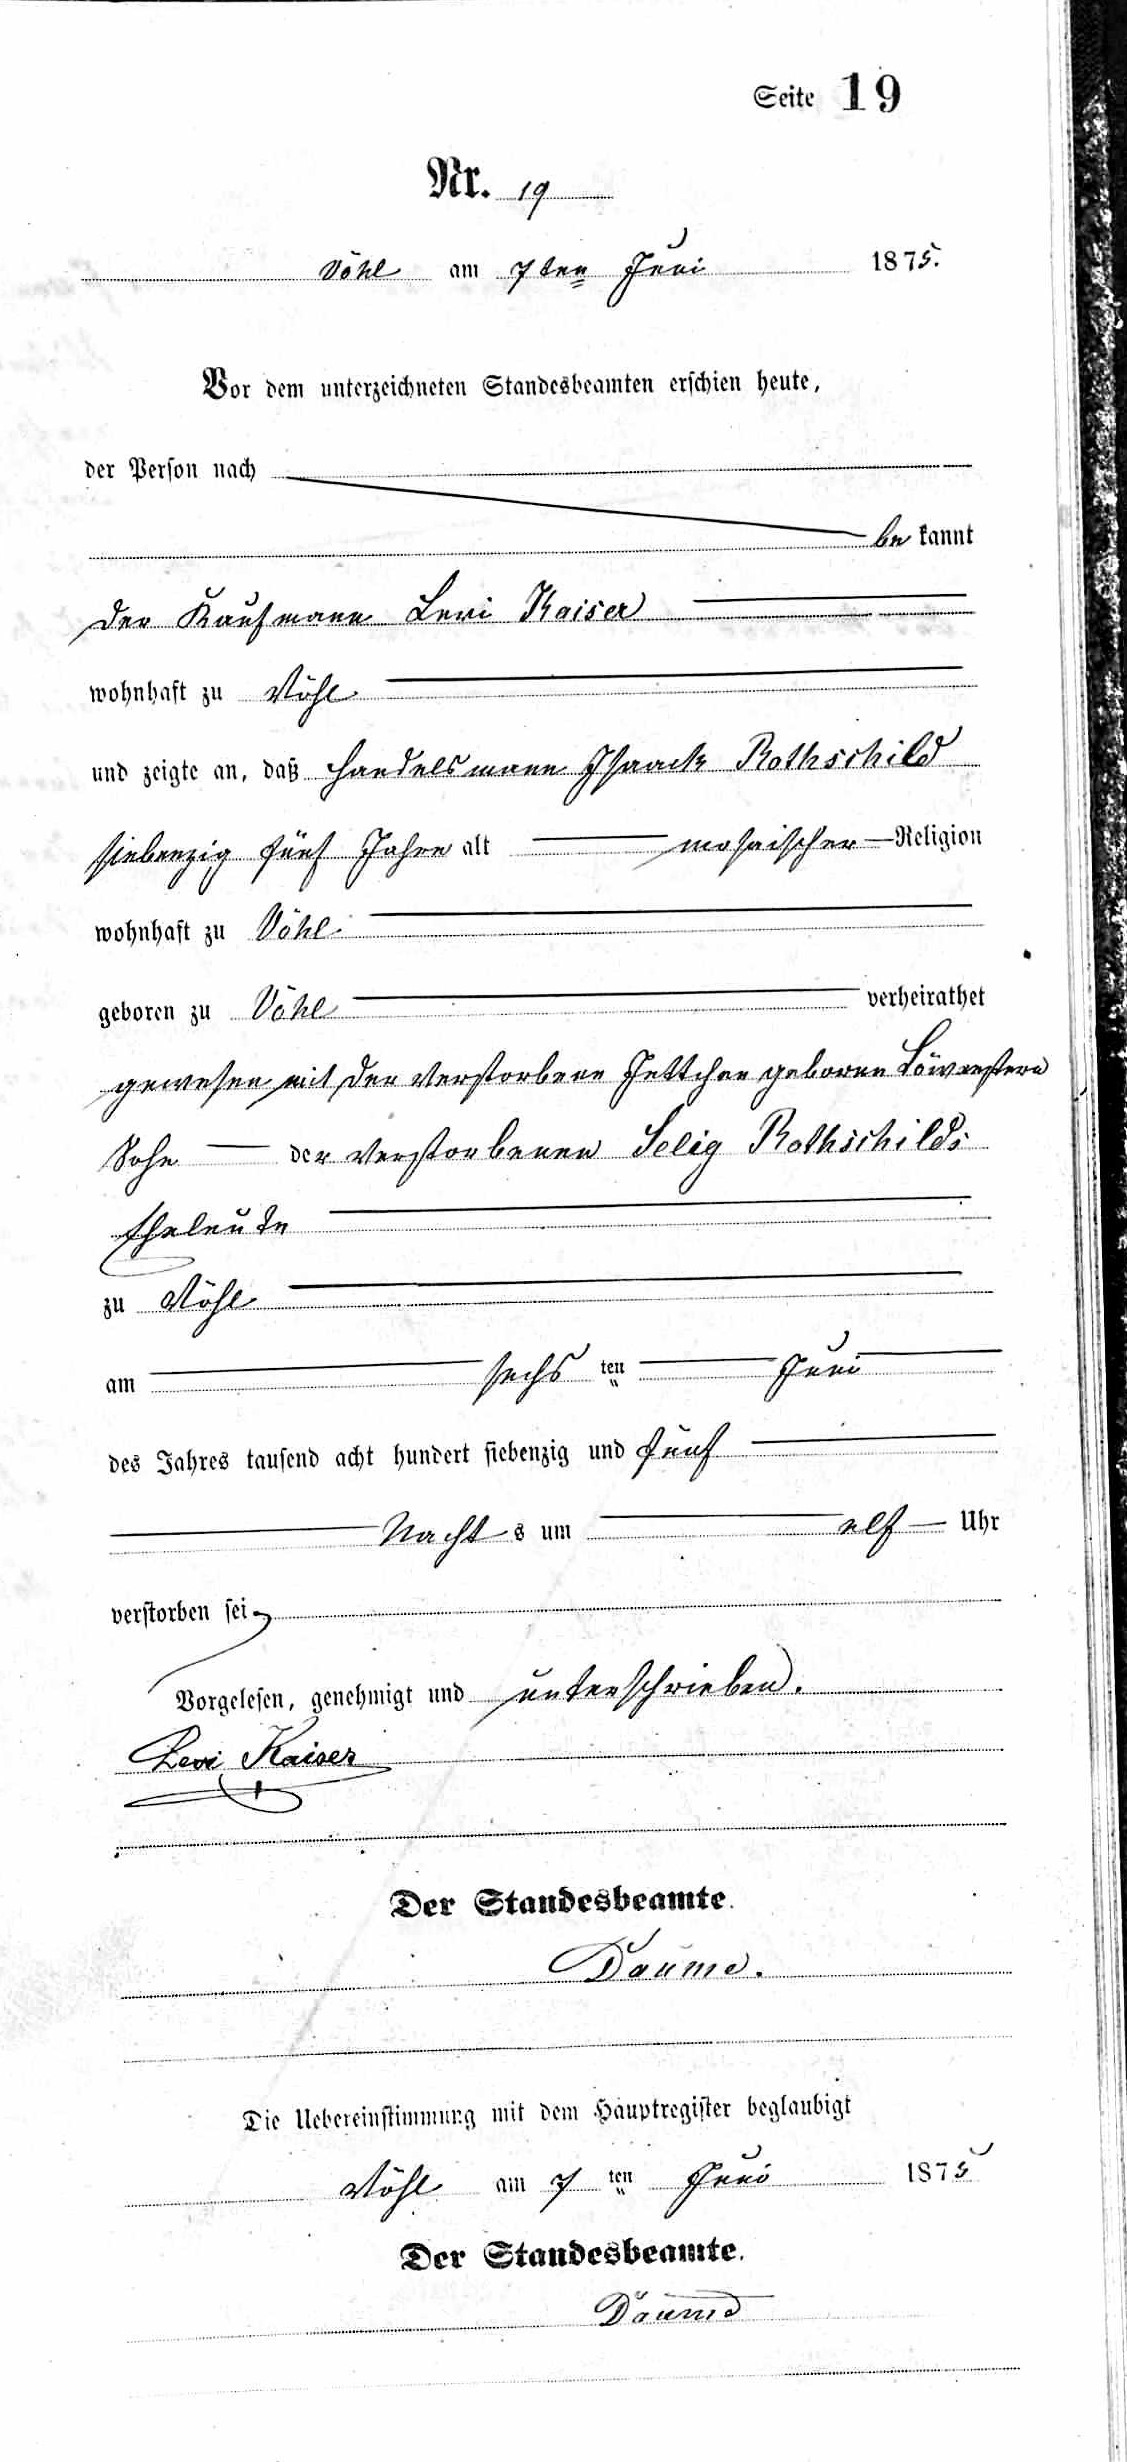 Seite 19
Nr. 19
Vöhl am 7ten Juni 1875.
Vor dem unterzeichneten Standesbeamten erschien heute,
der Person nach
be kannt
der Kaufmann Levi Kaiser
wohnhaft zu Vöhl
und zeigte an, daß Handelsmann Isaack Rothschild
siebenzig fünf Jahre alt mosaischer Religion
wohnhaft zu Vöhl
geboren zu Vöhl verheirathet
gewesen mit der verstorbenen Jettchen geboren Löwenstern
Sohn der verstorbenen Selig Rothschilds
Eheleute
zu Vöhl
am sechs ten Juni
des Jahres tausend acht hundert siebenzig und fünf
Nacht s um elf Uhr
verstorben sei
Vorgelesen, genehmigt und unterschrieben.
Levi Kaiser
Der Standesbeamte.
Daume.
Die Uebereinstimmung mit dem Hauptregister beglaubigt
Vöhl am 7 ten Juni 1875
Der Standesbeamte.
Daume